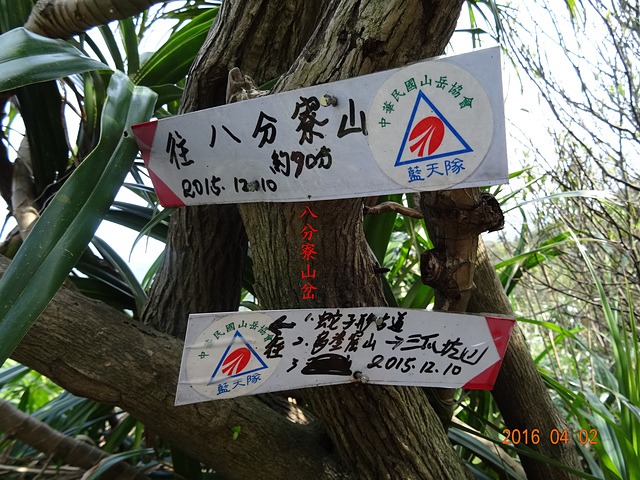 往八分寮山
約90分
2015.12.10
中華民國山岳協會
藍天隊
八分寮山岔
中華民國山岳協會
藍天隊
← 往
1. 蛇子形古道
2. 山 → 三瓜坑山
3
2015.12.10
2016 04 02